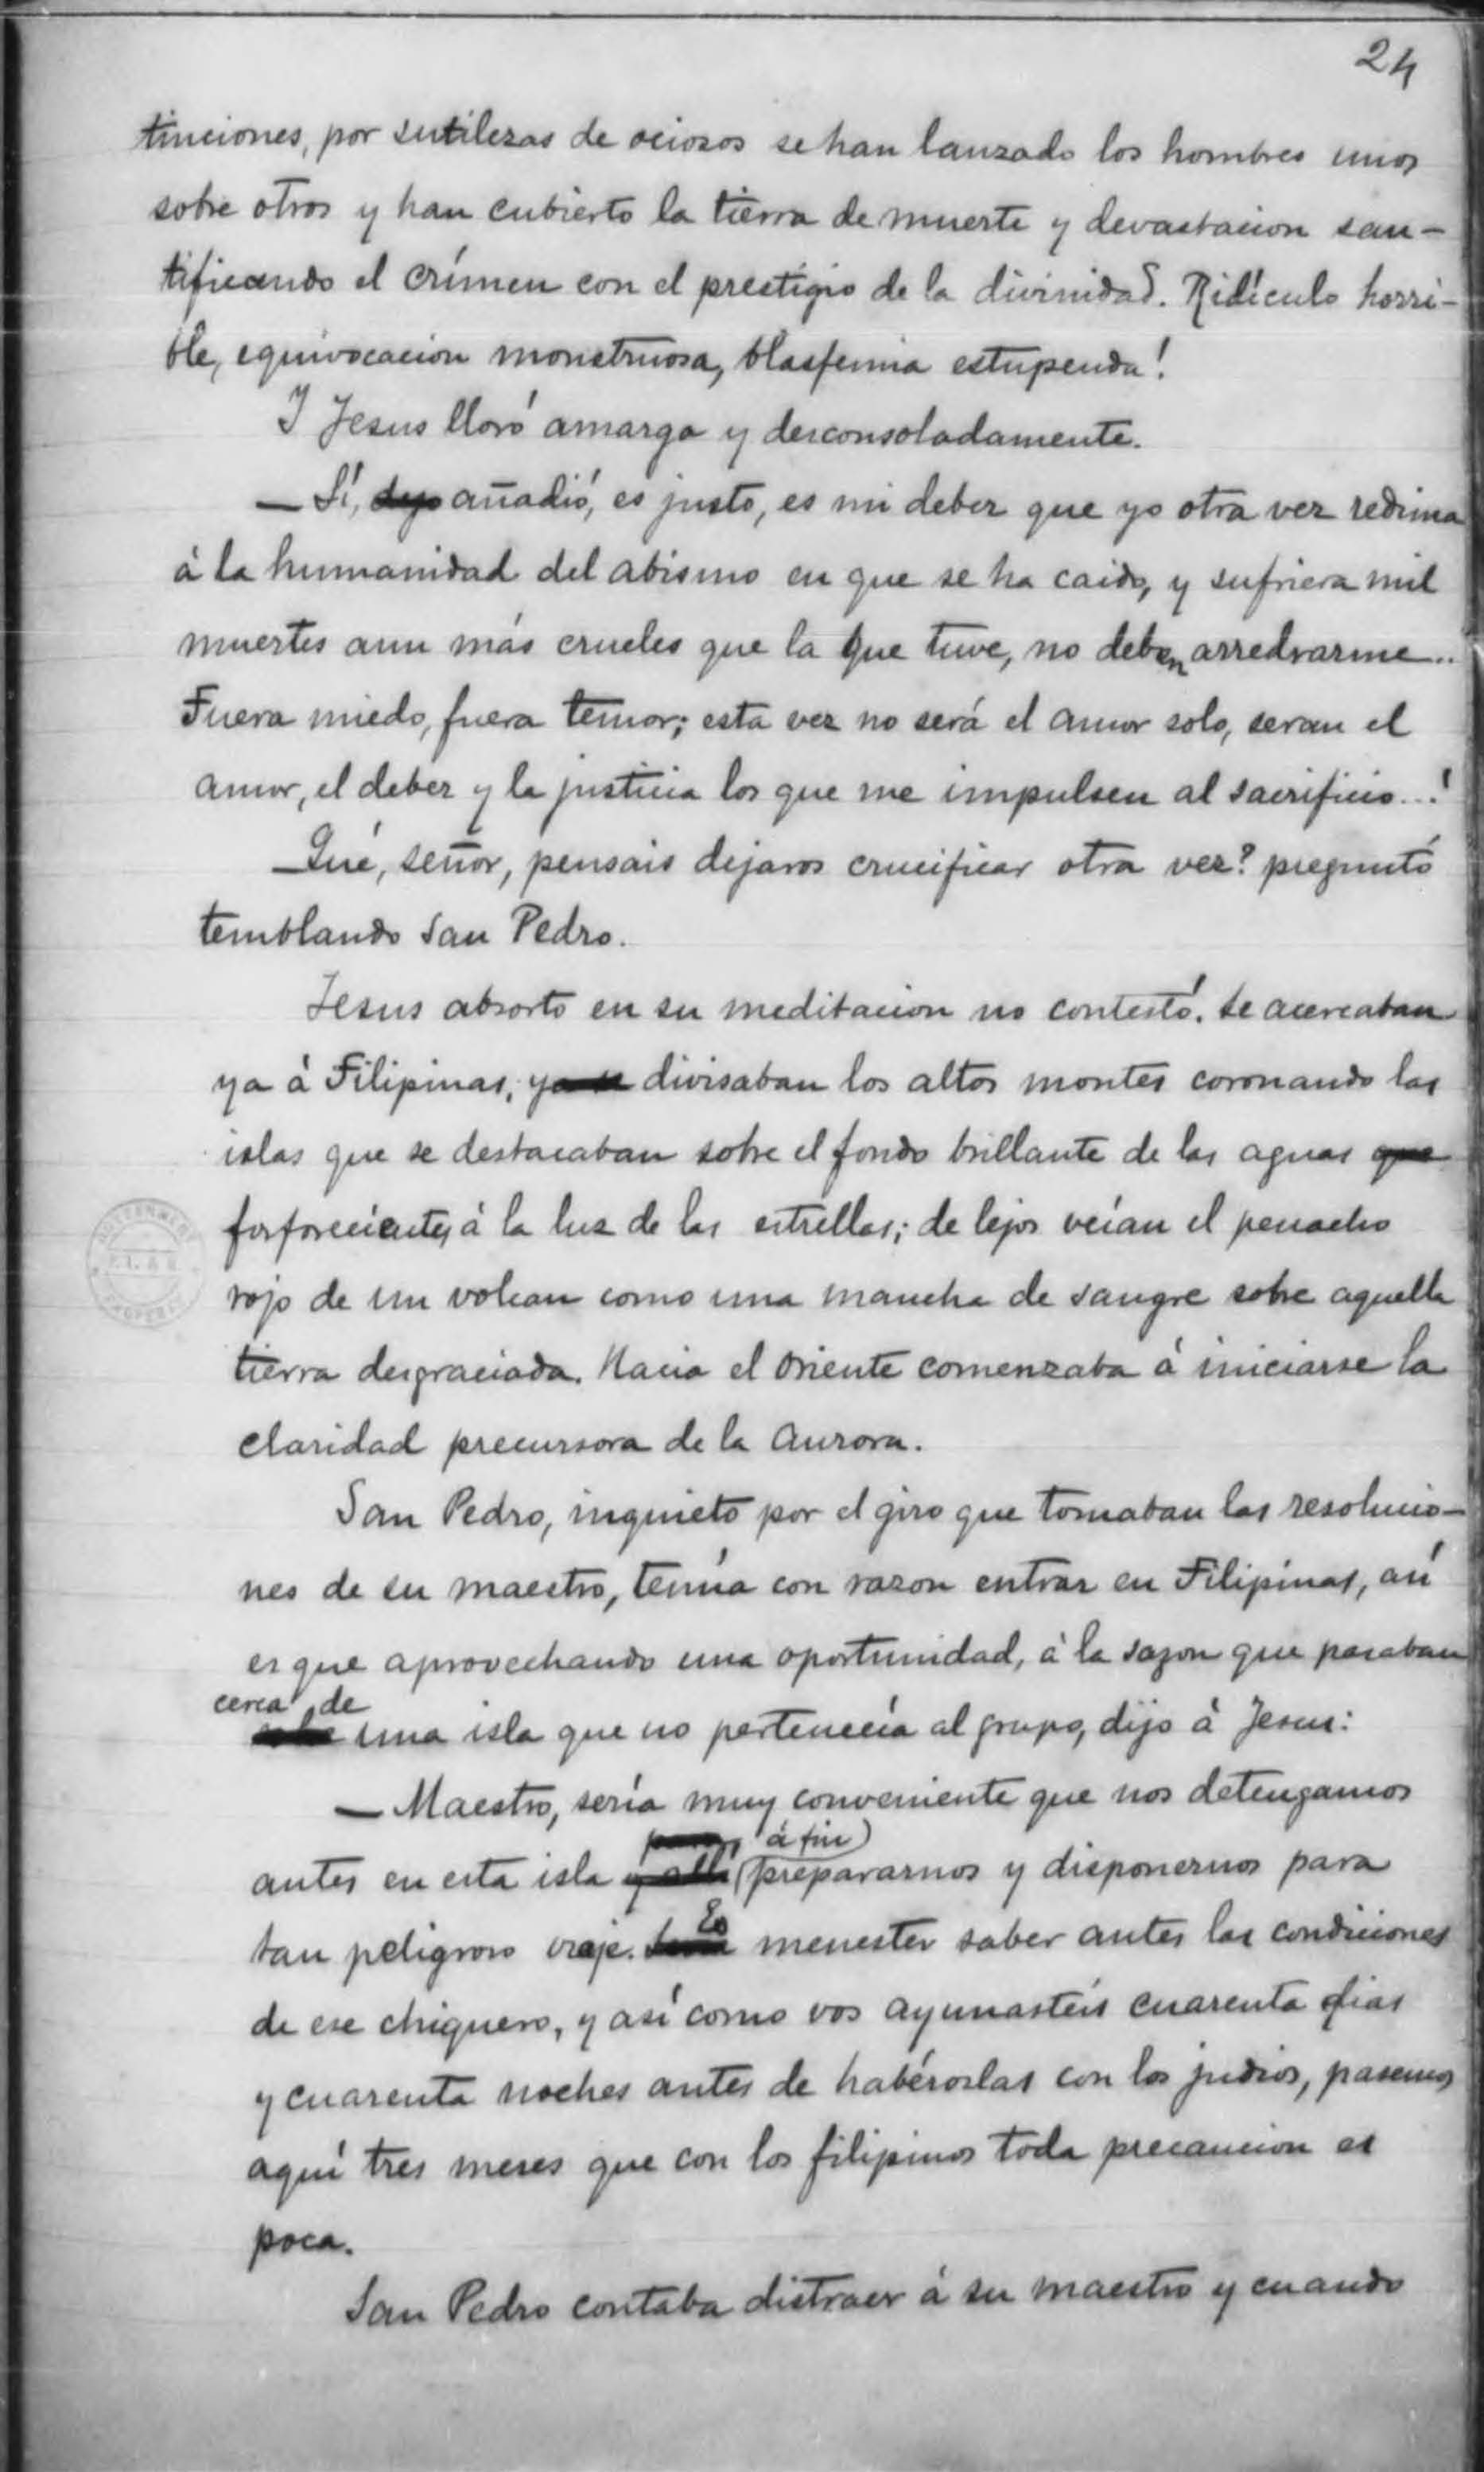 24
tinciones, por sutilezas de ociosos se han lanzado los hombres unos
sobre otros y han cubierto la tierra de muerte y devastacion san-
tificando el crímen con el prestigio de la divinidad. Ridículo horri-
ble, equivocacion monstruosa, blasfemia estupenda!
I Jesus lloró amarga y desconsoladamente.
— Sí, dijo añadió, es justo, es mi deber que yo otra vez redima
á la humanidad del abismo en que se ha caido, y sufriera mil
muertes aun más crueles que la que tuve, no deben arredrarme..
Fuera miedo, fuera temor; esta vez no será el amor solo, seran el
amor, el deber y la justicia los que me impulsen al sacrificio...!
— Qué, señor, pensais dejaros crucificar otra vez? preguntó
temblando San Pedro.
Jesus absorto en su meditacion no contestó. Se acercaban
ya á Filipinas, ya se divisaban los altos montes coronando las
islas que se destacaban sobre el fondo brillante de las aguas que
fosforecientes á la luz de las estrellas; de lejos veían el penacho
rojo de un volcan como una mancha de sangre sobre aquella
tierra desgraciada. Hacia el Oriente comenzaba á iniciarse la
claridad precursora de la Aurora.
San Pedro, inquieto por el giro que tomaban las resolucio-
nes de su maestro, temía con razon entrar en Filipinas, así
es que aprovechando una oportunidad, á la sazon que pasaban
cerca de
una isla que no pertenecía al grupo, dijo á Jesus:
— Maestro, sería muy conveniente que nos detengamos
á fin
antes en esta isla y allí prepararnos y disponernos para
Es
tan peligroso viaje. menester saber antes las condiciones
de ese chiquero, y así como vos ayunasteis cuarenta dias
y cuarenta noches antes de habéroslas con los judios, pasemos
aquí tres meses que con los filipinos toda precaucion es
poca.
San Pedro contaba distraer á su maestro y cuando